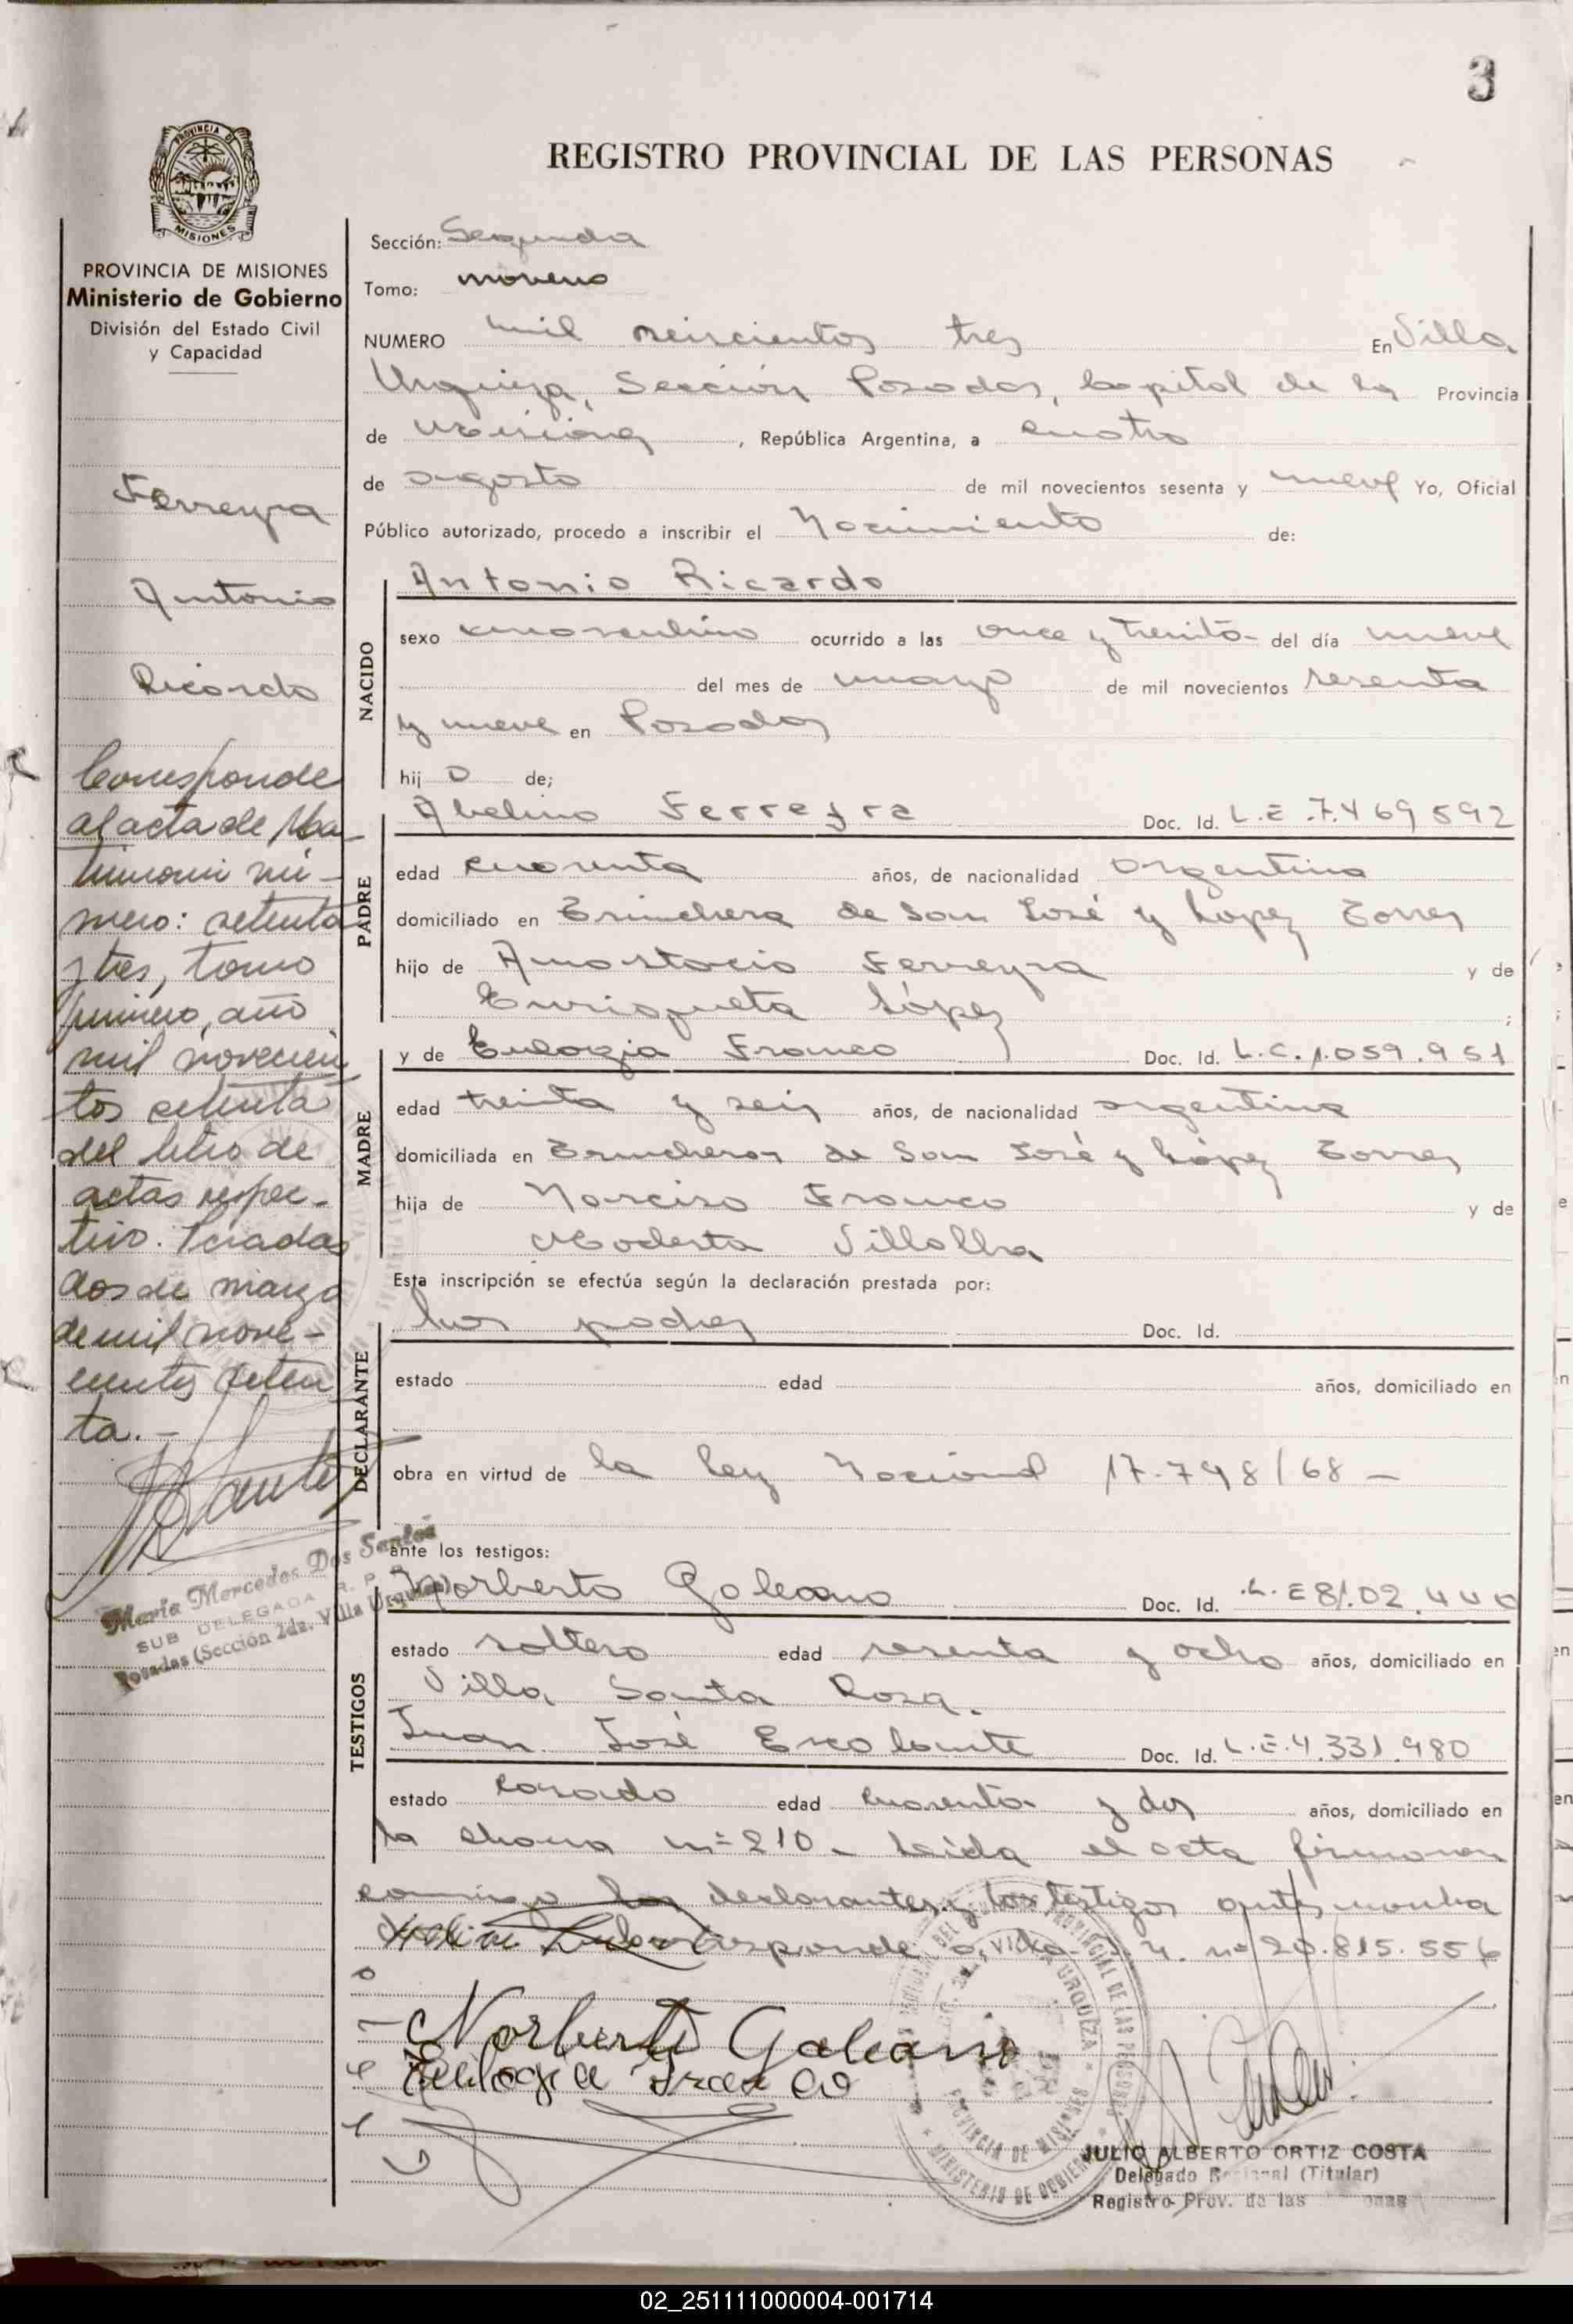 3
PROVINCIA DE
MISIONES
REGISTRO PROVINCIAL DE LAS PERSONAS
PROVINCIA DE MISIONES
Ministerio de Gobierno
División del Estado Civil
y Capacidad
Ferreyra
Antonio
Ricardo
Corresponde
al acta de Ma-
trimonio nú-
mero: setenta
y tres, tomo
primero, año
mil novecien
tos setenta
del libro de
actas respec-
tivo. Posadas
dos de marzo
de mil nove-
cientos seten
ta.-
María Mercedes Dos Santos
SUB DELEGADA R. P. P.
Posadas (Sección 2da. Villa Urquiza)
Sección: Segunda
Tomo: noveno
NUMERO mil seiscientos tres En Villa
Urquiza, Sección Posadas, Capital de la Provincia
de Misiones, República Argentina, a cuatro
de agosto de mil novecientos sesenta y nueve Yo, Oficial
Público autorizado, procedo a inscribir el Nacimiento de:
NACIDO
Antonio Ricardo
sexo masculino ocurrido a las once y treinta del día nueve
del mes de mayo de mil novecientos sesenta
y nueve en Posadas
hij o de;
PADRE
Abelino Ferreyra Doc. Id. L.E. 7.469592
edad cuarenta años, de nacionalidad argentina
domiciliado en Trinchera de San José y López Torres
hijo de Anastacio Ferreyra y de
Enriqueta López ;
MADRE
y de Eulogia Franco Doc. Id. L.C. 1.059.951
edad treinta y seis años, de nacionalidad argentina
domiciliada en Trincheras de San José y López Torres
hija de Narciso Franco y de
Modesta Villalba
Esta inscripción se efectúa según la declaración prestada por:
DECLARANTE
Sus padres Doc. Id.
estado edad años, domiciliado en
obra en virtud de la Ley Nacional 17.748/68 -
ante los testigos:
TESTIGOS
Norberto Galeano Doc. Id. L.E 8/.02.440
estado soltero edad sesenta y ocho años, domiciliado en
Villa Santa Rosa.
Juan José Escalante Doc. Id. L.E. 4.331.980
estado casado edad cuarenta y dos años, domiciliado en
la chacra nº 210 - Leída el acta firmaron
conmigo los declarantes y los testigos antes
corresponde nº 20.815.556
Norberto Galeano
Eulogia Franco
VILLA URQUIZA
PROVINCIA DE MISIONES
MINISTERIO DE GOBIERNO
JULIO ALBERTO ORTIZ COSTA
Delegado Regional (Titular)
Registro Prov. de las
02_251111000004-001714